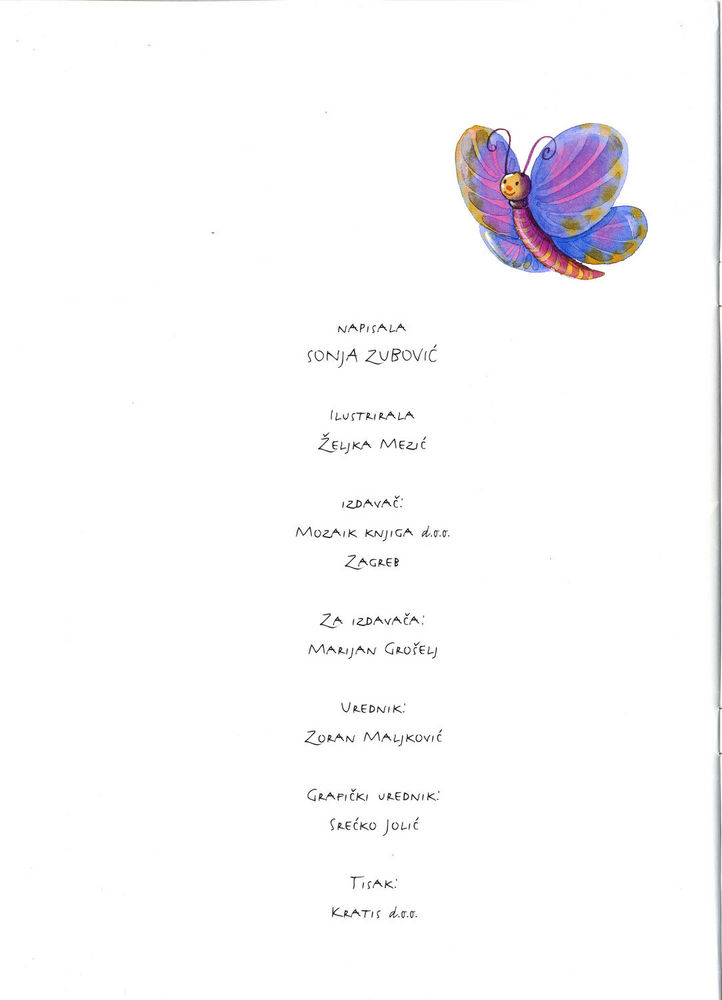 NAPISALA
SONJA ZUBOVIĆ
ILUSTRIRALA
ŽELJKA MEZIĆ
IZDAVAČ:
MOZAIK KNJIGA d.o.o.
ZAGREB
ZA IZDAVAČA:
MARIJAN GROŠELJ
UREDNIK:
ZORAN MALJKOVIĆ
GRAFIČKI UREDNIK:
SREĆKO JOLIĆ
TISAK:
KRATIS d.o.o.